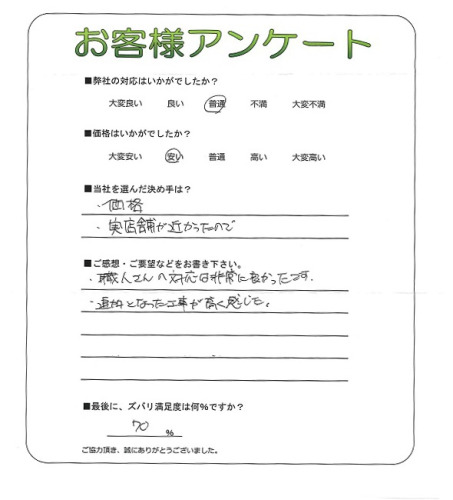 お客様アンケート
■弊社の対応はいかがでしたか?
大変良い 良い 普通 不満 大変不満
■価格はいかがでしたか?
大変安い 安い 普通 高い 大変高い
■当社を選んだ決め手は?
・価格
・実店舗が近かったので
■ご感想・ご要望などをお書き下さい。
・職人さんの対応は非常に良かったです.
・追加となった工事が高く感じた。
■最後に、ズバリ満足度は何%ですか?
70 %
ご協力頂き、誠にありがとうございました。